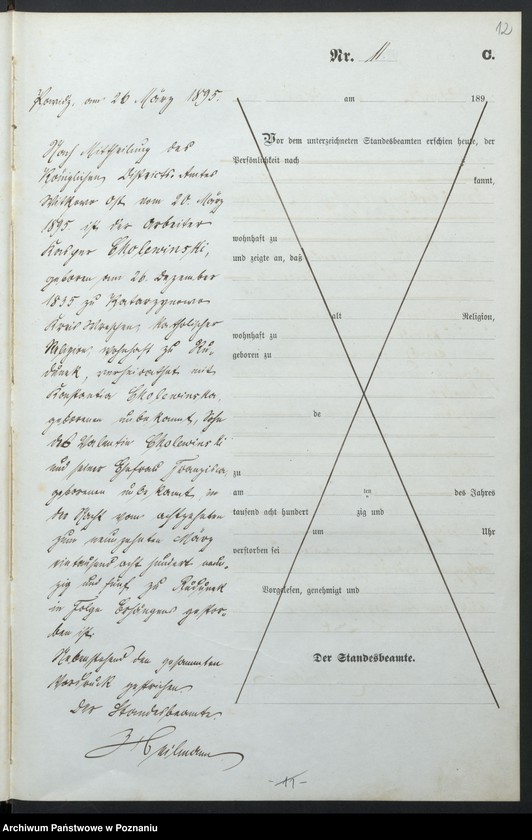 12
Nr. 11. C.
Powidz, am 26 März 1895.
am 189
Nach Mittheilung des
Königlichen Distrikts Amtes
Witkowo Ost vom 20. März
1895 ist der Arbeiter
Kasper Cholewinski,
geboren am 26. Dezember
1835 zu Katarzynowo
Kreis Wreschen, katholischer
Religion, wohnhaft zu Ru-
dunek, verheirathet mit
Konstantia Cholewinska,
geborenen unbekannt, Sohn
des Valentin Cholewinski
und seiner Ehefrau Franziska
geborenen unbekannt, in
der Nacht vom achtzehnten
zum neunzehnten März
eintausend acht hundert neun-
zig und fünf zu Rudunek
in Folge Erhängens gestor-
ben ist.
Nebenstehend den gesammten
Vordruck gestrichen
Der Standesbeamte.
Heilmann
Vor dem unterzeichneten Standesbeamten erschien heute, der
Persönlichkeit nach
kannt,
wohnhaft zu
und zeigte an, daß
alt Religion,
wohnhaft zu
geboren zu
de
zu
am ten des Jahres
tausend acht hundert zig und
um Uhr
verstorben sei
Vorgelesen, genehmigt und
Der Standesbeamte.
-11-
Archiwum Państwowe w Poznaniu